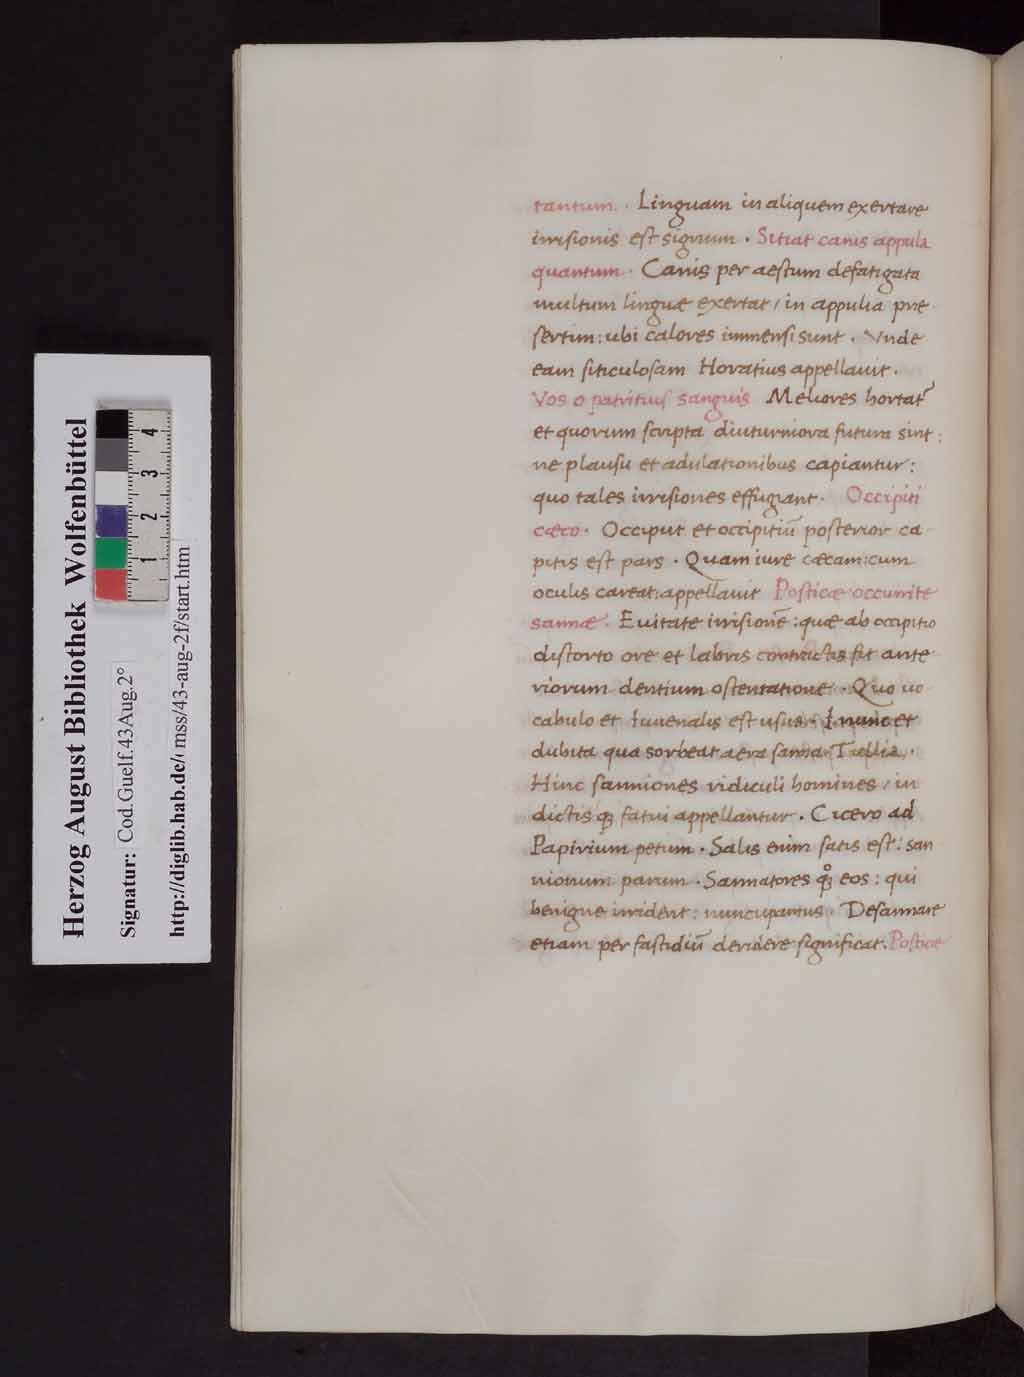 Herzog August Bibliothek Wolfenbüttel
Signatur: Cod.Guelf.43Aug.2°
http://diglib.hab.de/ mss/43-aug-2f/start.htm
1 2 3 4
tantum . Linguam in aliquem exertare
irrisionis est signum . Sitiat canis appula
quantum . Canis per aestum defatigata
multum linguæ exertat / in appulia præ
sertim: ubi calores immensi sunt . Vnde
eam siticulosam Horatius appellauit .
Vos o patritius sanguis Meliores hortat᷑
et quorum scripta diuturniora futura sint :
ne plausu et adulationibus capiantur :
quo tales irrisiones effugiant . Occipiti
cæco . Occiput et occipitiū posterior ca
pitis est pars . Quam iure cæcam: cum
oculis careat: appellauit Posticæ occurrite
sannæ . Euitate irrisionē : quæ ab occipitio
distorto ore et labris contractis fit ante
riorum dentium ostentatione . Quo uo
cabulo et Iuuenalis est usus . I nunc et
dubita qua sorbeat aera sanna Tullia .
Hinc sanniones ridiculi homines / in
dictis qꝫ fatui appellantur . Cicero ad
Papirium petum . Salis enim satis est : san
nionum parum . Sannatores qꝫ eos : qui
benigne irrident : nuncupantus . Desannare
etiam per fastidiū deridere significat . Posticæ